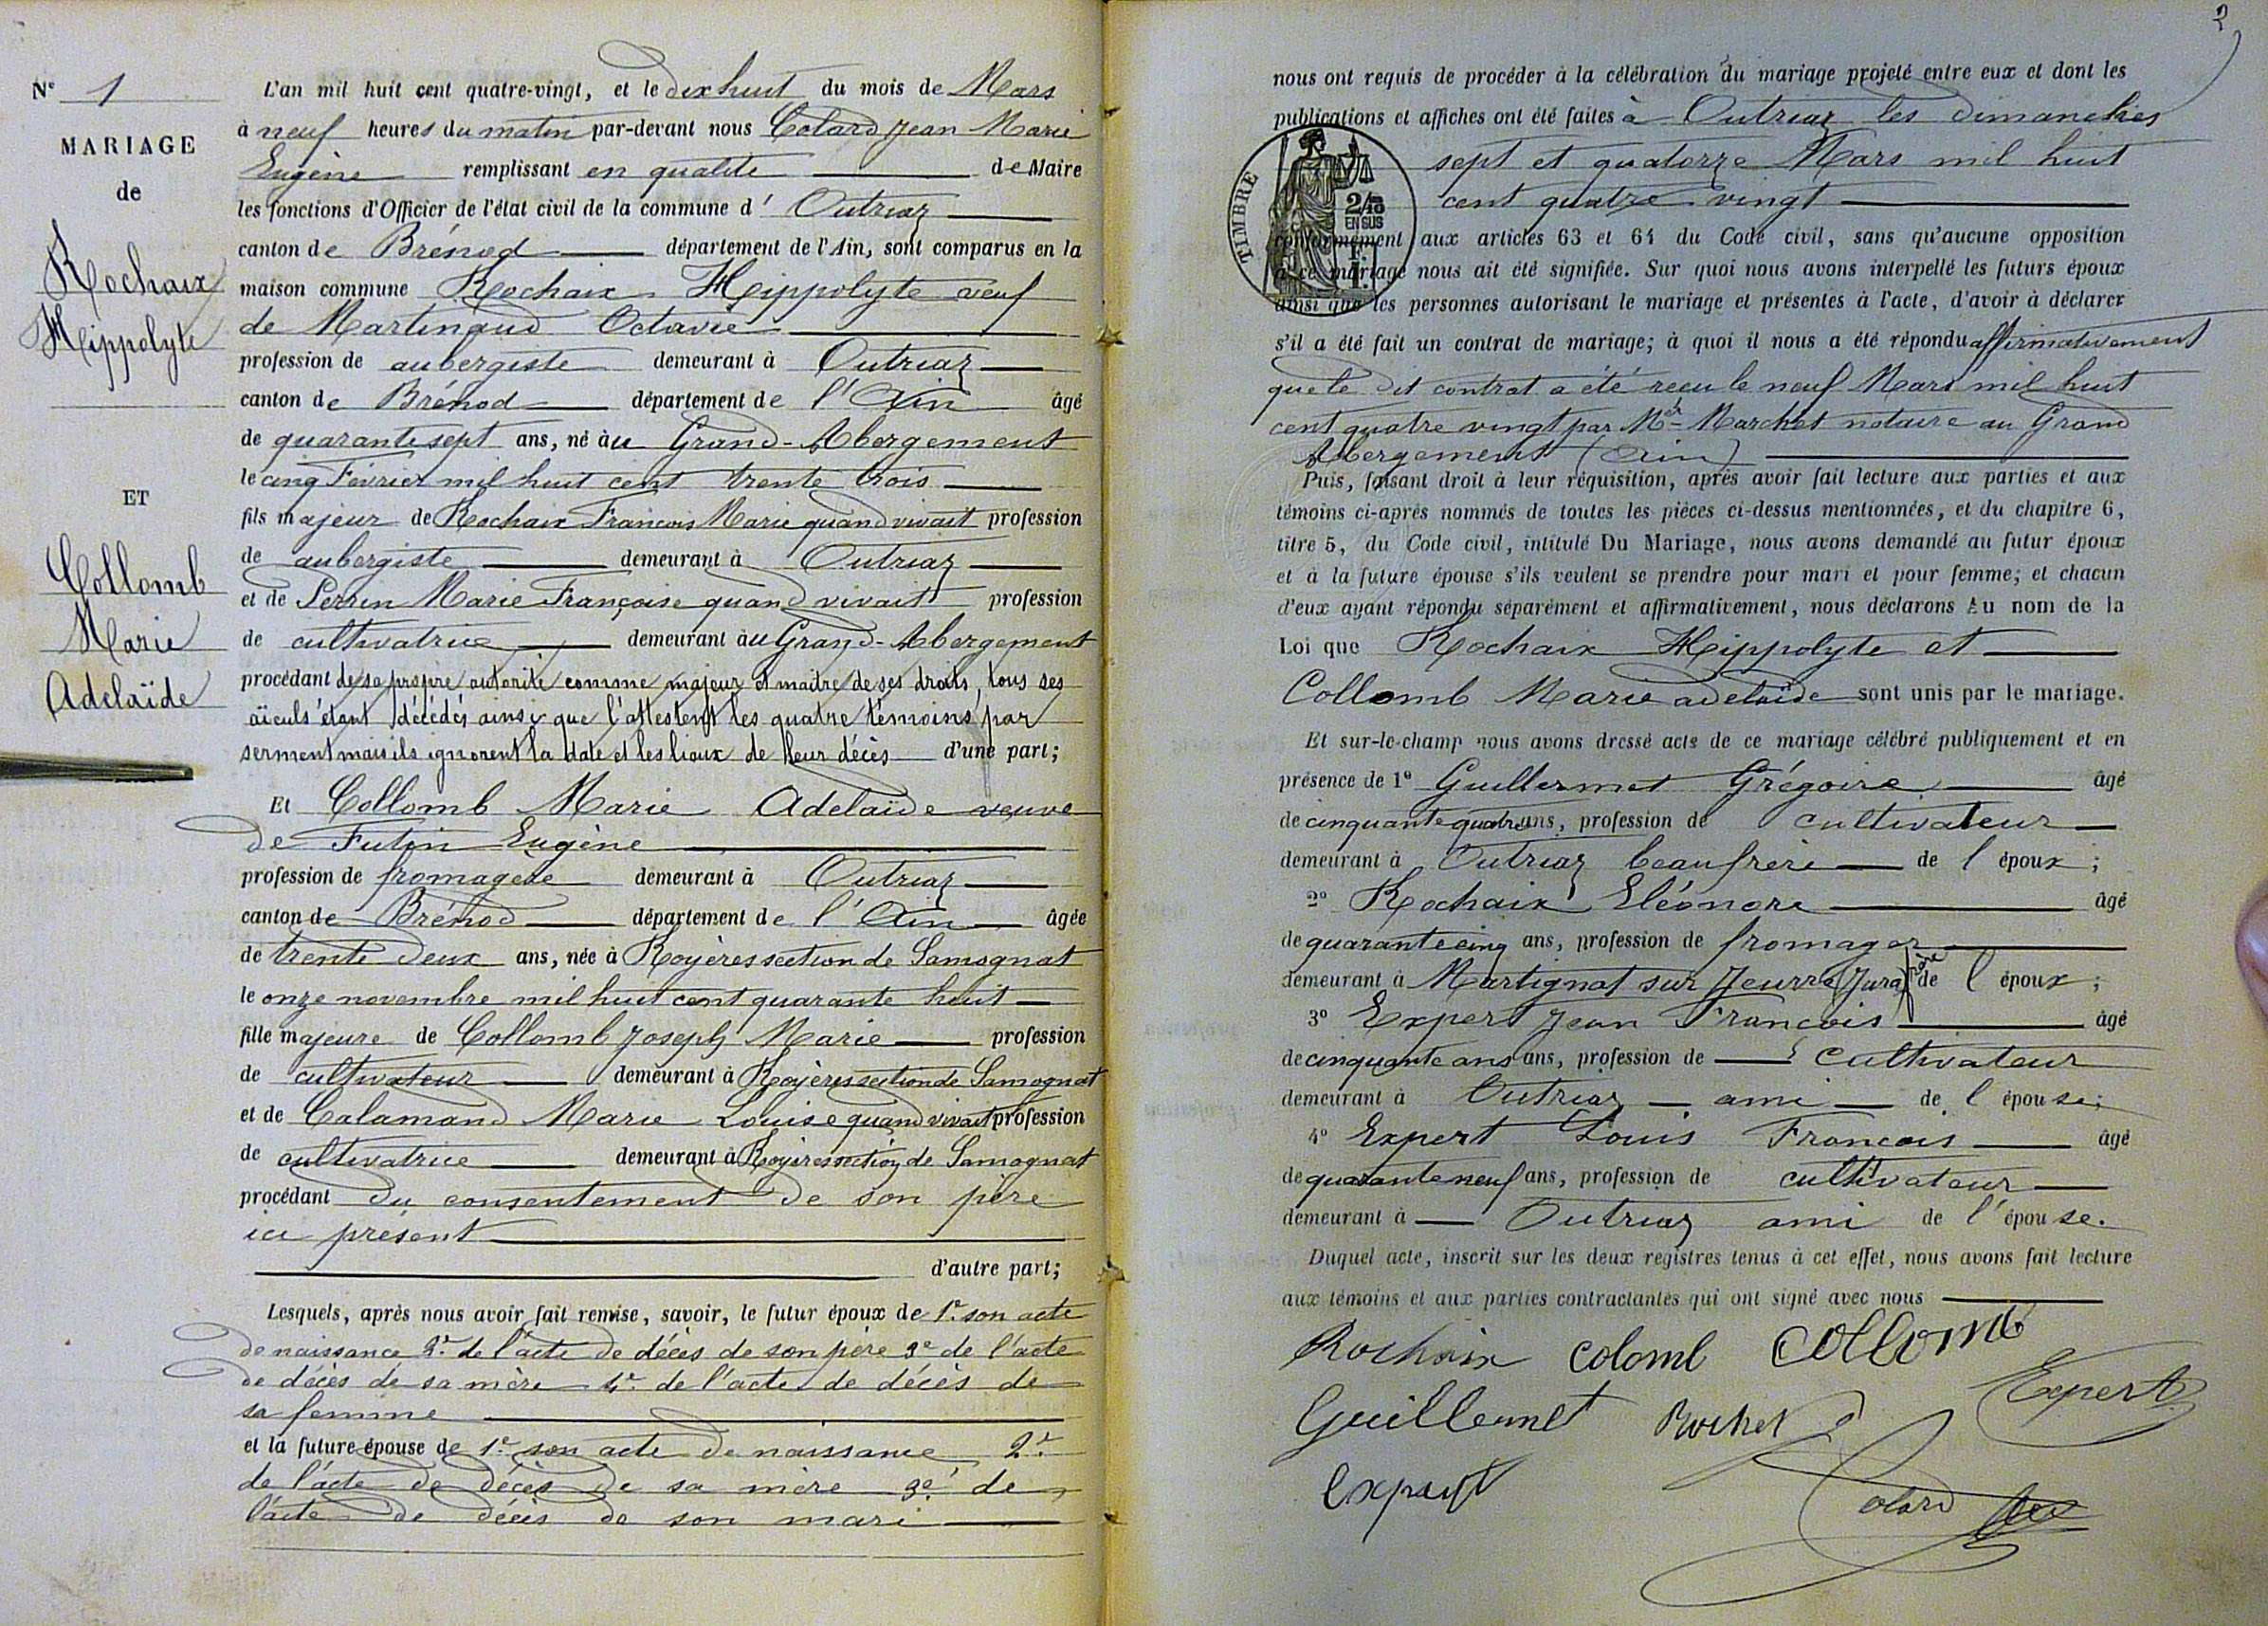 Nº 1
MARIAGE
de
Rochaix
Hippolyte
ET
Collomb
Marie
Adelaïde
L'an mil huit cent quatre-vingt, et le dix huit du mois de Mars
à neuf heures du matin par-devant nous Colard Jean Marie
Eugène remplissant en qualité de Maire
les fonctions d'Officier de l'état civil de la commune d' Outriaz
canton de Brénod département de l'Ain, sont comparus en la
maison commune Rochaix Hippolyte veuf
de Martinand Octavie
profession de aubergiste demeurant à Outriaz
canton de Brénod département de l'Ain âgé
de quarante sept ans, né au Grand-Abergement
le cinq Février mil huit cent trente trois
fils majeur de Rochaix François Marie quand vivait profession
de aubergiste demeurant à Outriaz
et de Perrin Marie Françoise quand vivait profession
de cultivatrice demeurant au Grand-Abergement
procédant de sa propre autorité comme majeur et maître de ses droits, tous ses
aïeuls étant décédés ainsi que l'attestent les quatre témoins par
serment mais ils ignorent la date et les lieux de leur décès d'une part;
Et Collomb Marie Adelaïde veuve
de Futin Eugène
profession de fromagère demeurant à Outriaz
canton de Brénod département de l'Ain âgée
de trente deux ans, née à Royères section de Samognat
le onze novembre mil huit cent quarante huit
fille majeure de Collomb Joseph Marie profession
de cultivateur demeurant à Royères section de Samognat
et de Calamand Marie Louise quand vivait profession
de cultivatrice demeurant à Royères section de Samognat
procédant du consentement de son père
ici présent
d'autre part;
Lesquels, après nous avoir fait remise, savoir, le futur époux de 1º son acte
de naissance 2º de l'acte de décès de son père 3º de l'acte
de décès de sa mère 4º de l'acte de décès de
sa femme
et la future épouse de 1º son acte de naissance 2º
de l'acte de décès de sa mère 3º de
l'acte de décès de son mari
2
nous ont requis de procéder à la célébration du mariage projeté entre eux et dont les
publications et affiches ont été faites à Outriaz les dimanches
sept et quatorze Mars mil huit
cent quatre vingt
TIMBRE
2/10
EN SUS
conformément aux articles 63 et 64 du Code civil, sans qu'aucune opposition
à ce mariage nous ait été signifiée. Sur quoi nous avons interpellé les futurs époux
ainsi que les personnes autorisant le mariage et présentes à l'acte, d'avoir à déclarer
s'il a été fait un contrat de mariage; à quoi il nous a été répondu affirmativement
que le dit contrat a été reçu le neuf Mars mil huit
cent quatre vingt par Me Marchet notaire au Grand
Abergement (Ain)
Puis, faisant droit à leur réquisition, après avoir fait lecture aux parties et aux
témoins ci-après nommés de toutes les pièces ci-dessus mentionnées, et du chapitre 6,
titre 5, du Code civil, intitulé Du Mariage, nous avons demandé au futur époux
et à la future épouse s'ils veulent se prendre pour mari et pour femme; et chacun
d'eux ayant répondu séparément et affirmativement, nous déclarons Au nom de la
Loi que Rochaix Hippolyte et
Collomb Marie adelaïde sont unis par le mariage.
Et sur-le-champ nous avons dressé acte de ce mariage célébré publiquement et en
présence de 1º Guillermet Grégoire âgé
de cinquante quatre ans, profession de cultivateur
demeurant à Outriaz beaufrère de l'époux;
2º Rochaix Eléonore âgé
de quarante cinq ans, profession de fromager
demeurant à Martignat sur Jeurre (Jura) frère de l'époux;
3º Expert Jean François âgé
de cinquante ans ans, profession de cultivateur
demeurant à Outriaz ami de l'épouse;
4º Expert Louis François âgé
de quarante neuf ans, profession de cultivateur
demeurant à Outriaz ami de l'épouse.
Duquel acte, inscrit sur les deux registres tenus à cet effet, nous avons fait lecture
aux témoins et aux parties contractantes qui ont signé avec nous
Rochaix colomb Collomb
Guillermet Rochex Expert
expert Colard